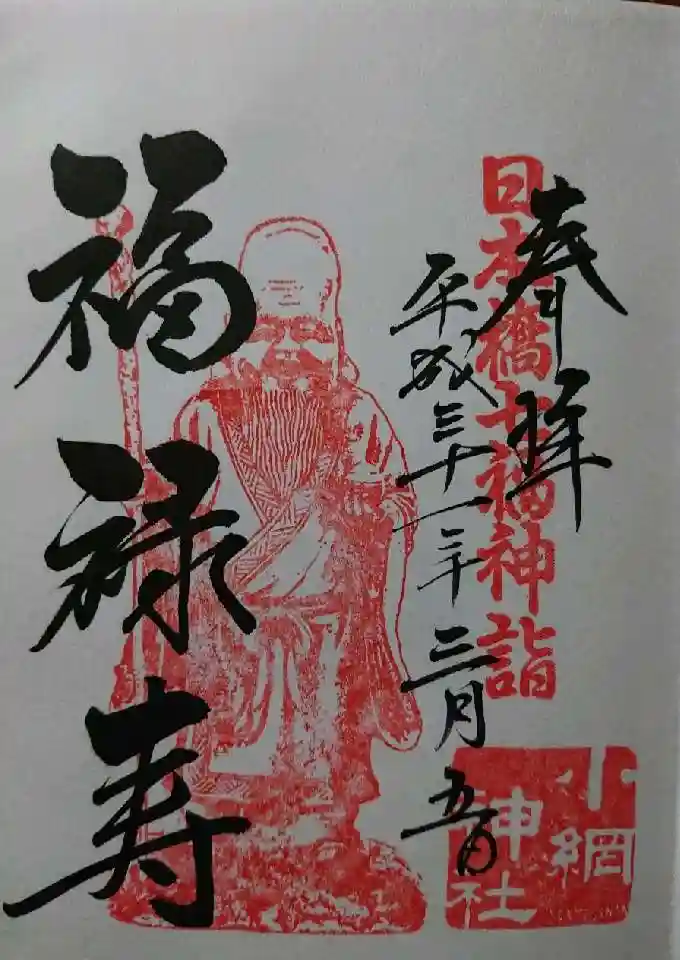 奉拝
日本橋七福神詣
平成三十一年三月五日
小網
神社
福禄寿